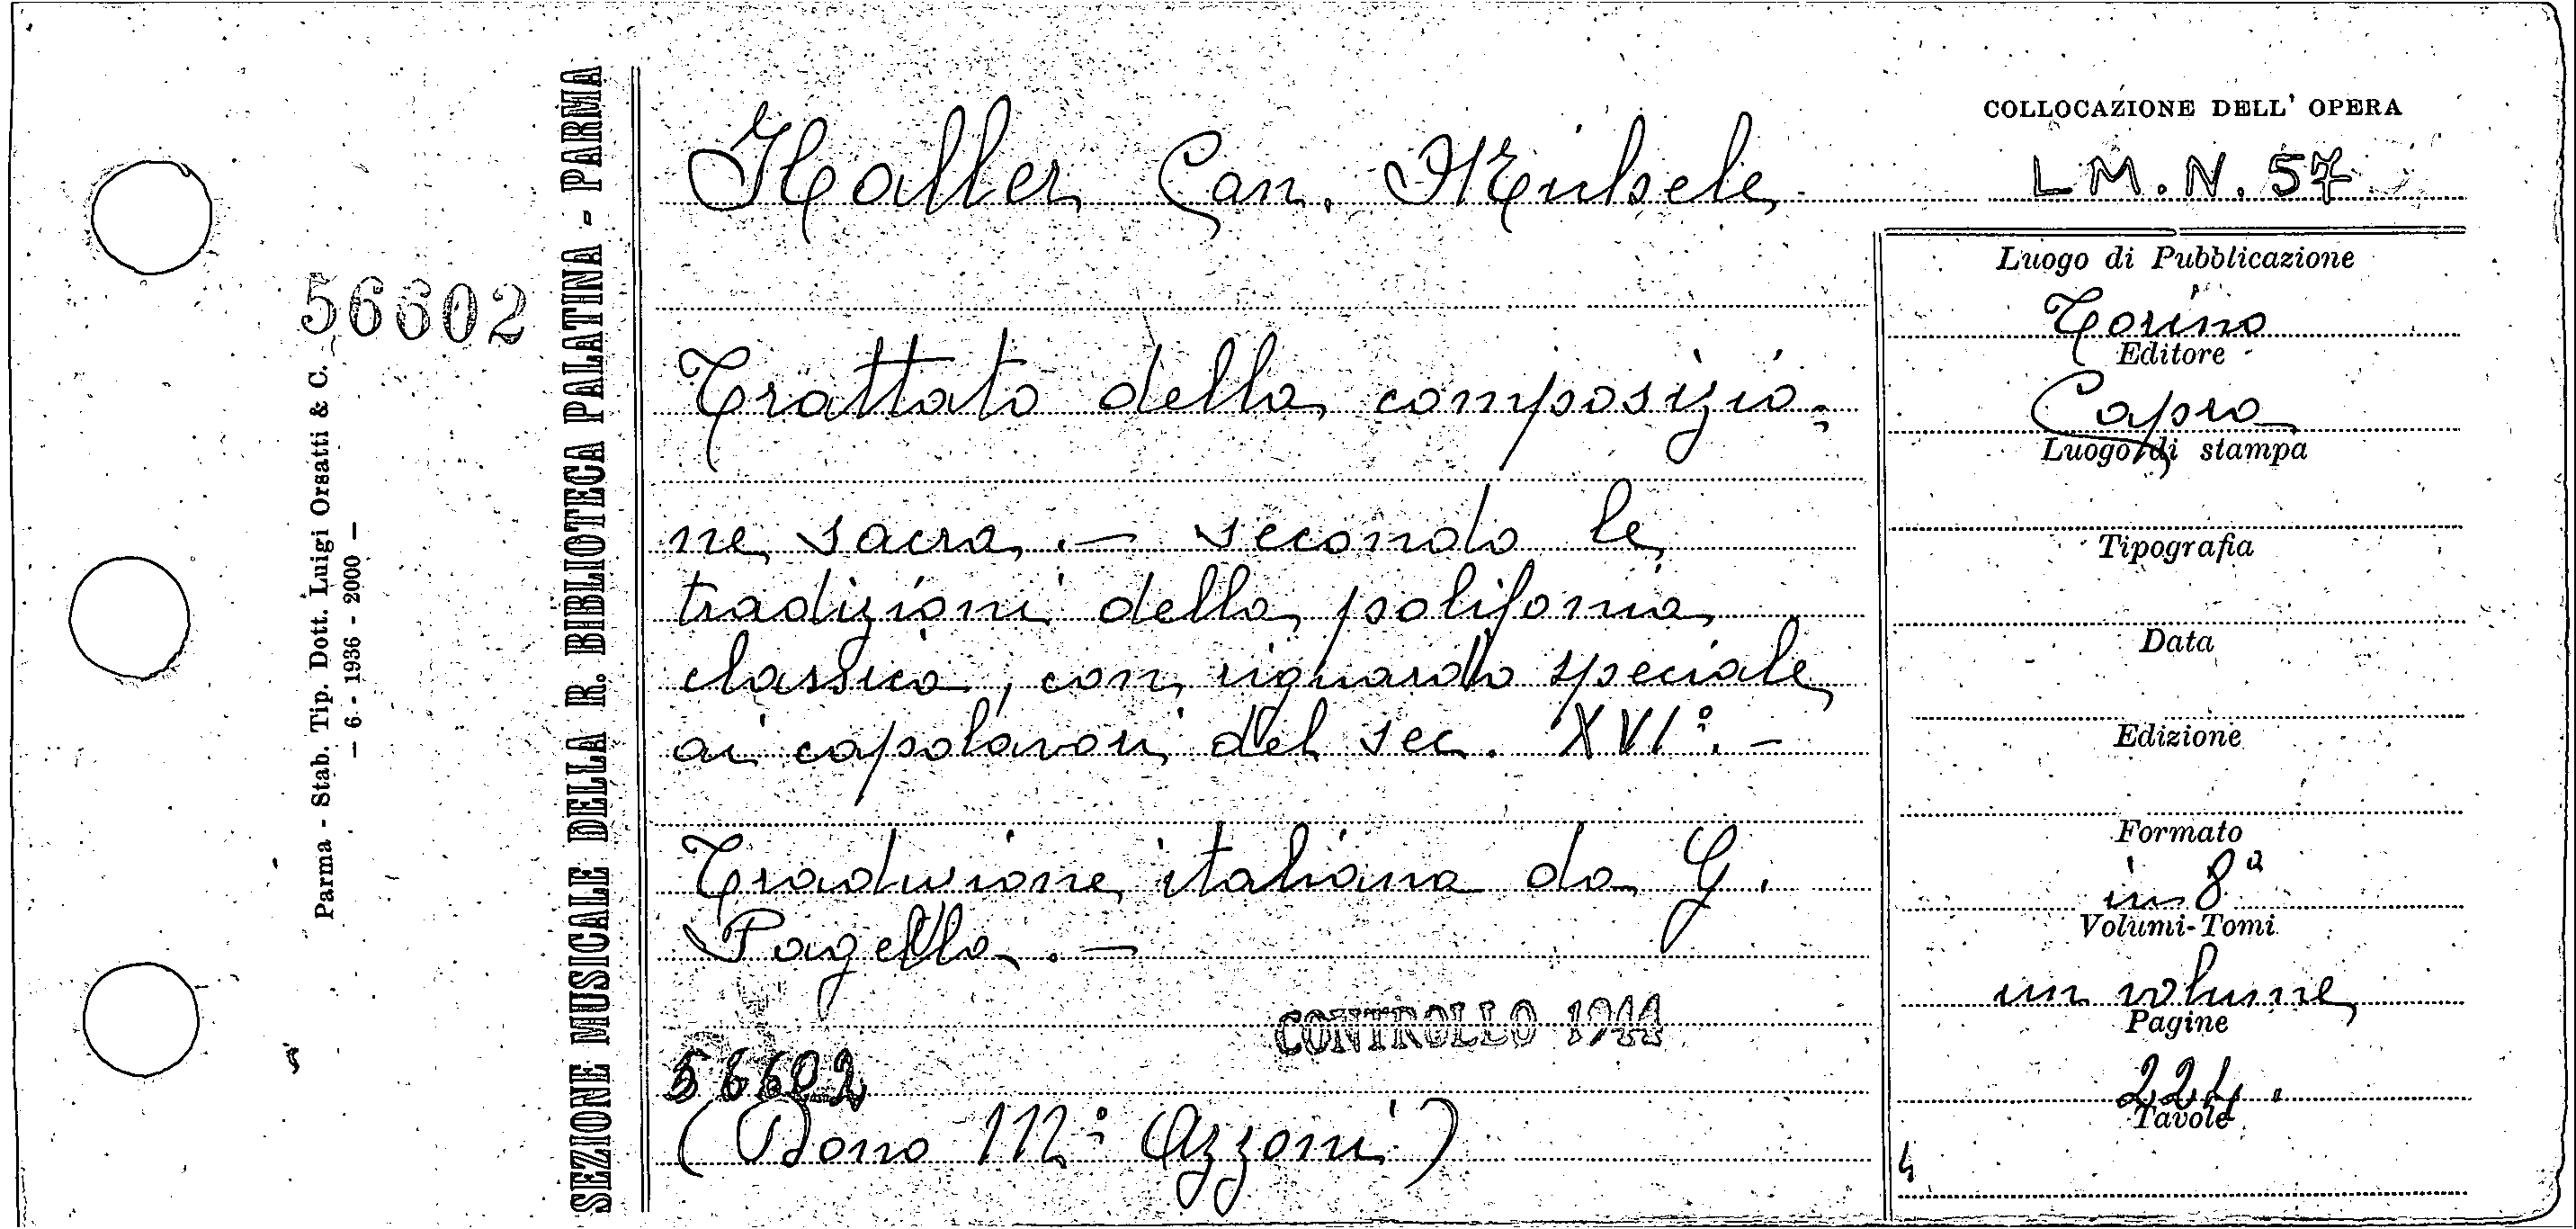 56602
Parma - Stab. Tip. Dott. Luigi Orsatti & C.
— 6 - 1936 - 2000 —
SEZIONE MUSICALE DELLA R. BIBLIOTECA PALATINA - PARMA
Haller Can. Michele
Trattato della composizio=
ne sacra. — secondo le
tradizioni della polifonia
classica, con riguardo speciale
ai capolavori del sec. XVI°. —
Traduzione italiana da G.
Pagella. —
CONTROLLO 1944
56602
(Dono M° Azzoni)
COLLOCAZIONE DELL' OPERA
L M. N. 57
Luogo di Pubblicazione
Torino
Editore
Capra
Luogo di stampa
Tipografia
Data
Edizione
Formato
in 8°
Volumi-Tomi
un volume
Pagine
224.
Tavole